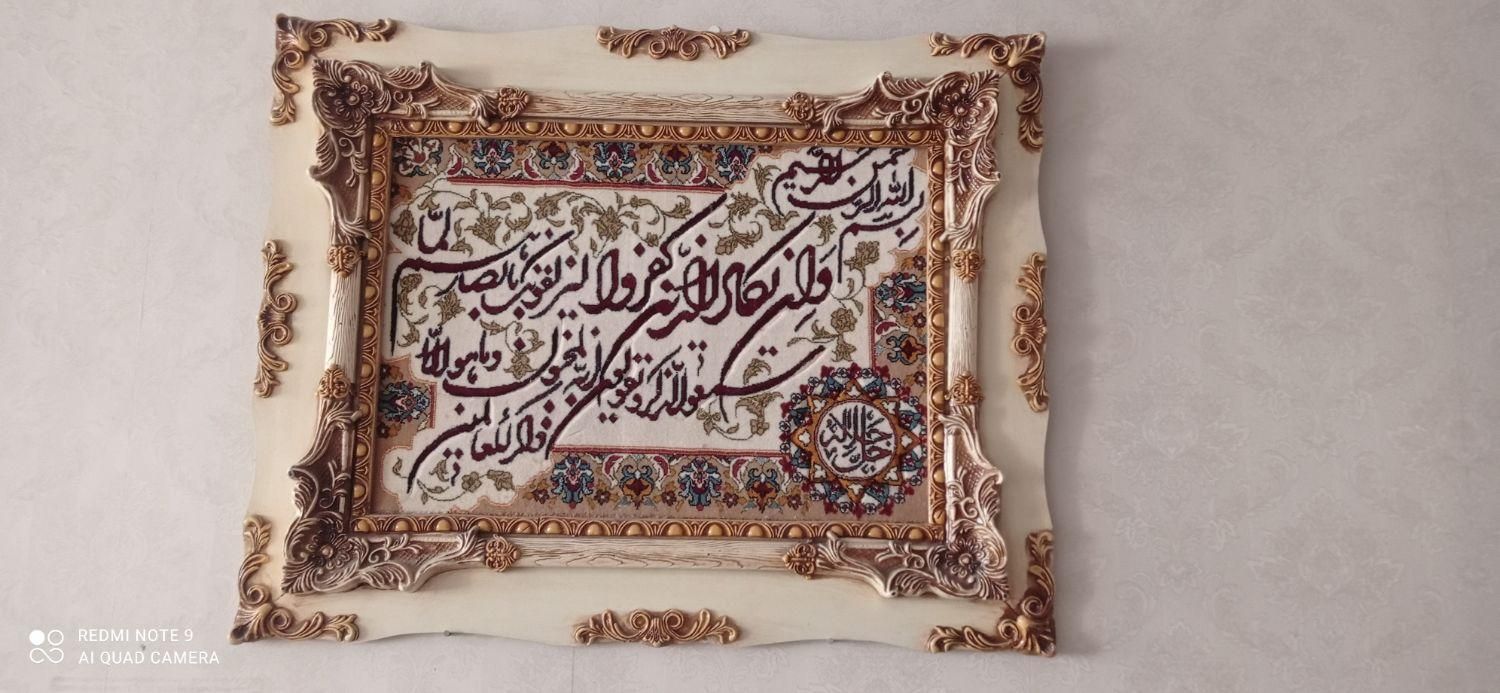 بسم الله الرحمن الرحیم
وان یکاد الذین کفروا لیزلقونک بابصارهم لما
سمعوا الذکر و یقولون انه لمجنون وما هو الا
ذکر للعالمین
جل جلاله
REDMI NOTE 9
AI QUAD CAMERA